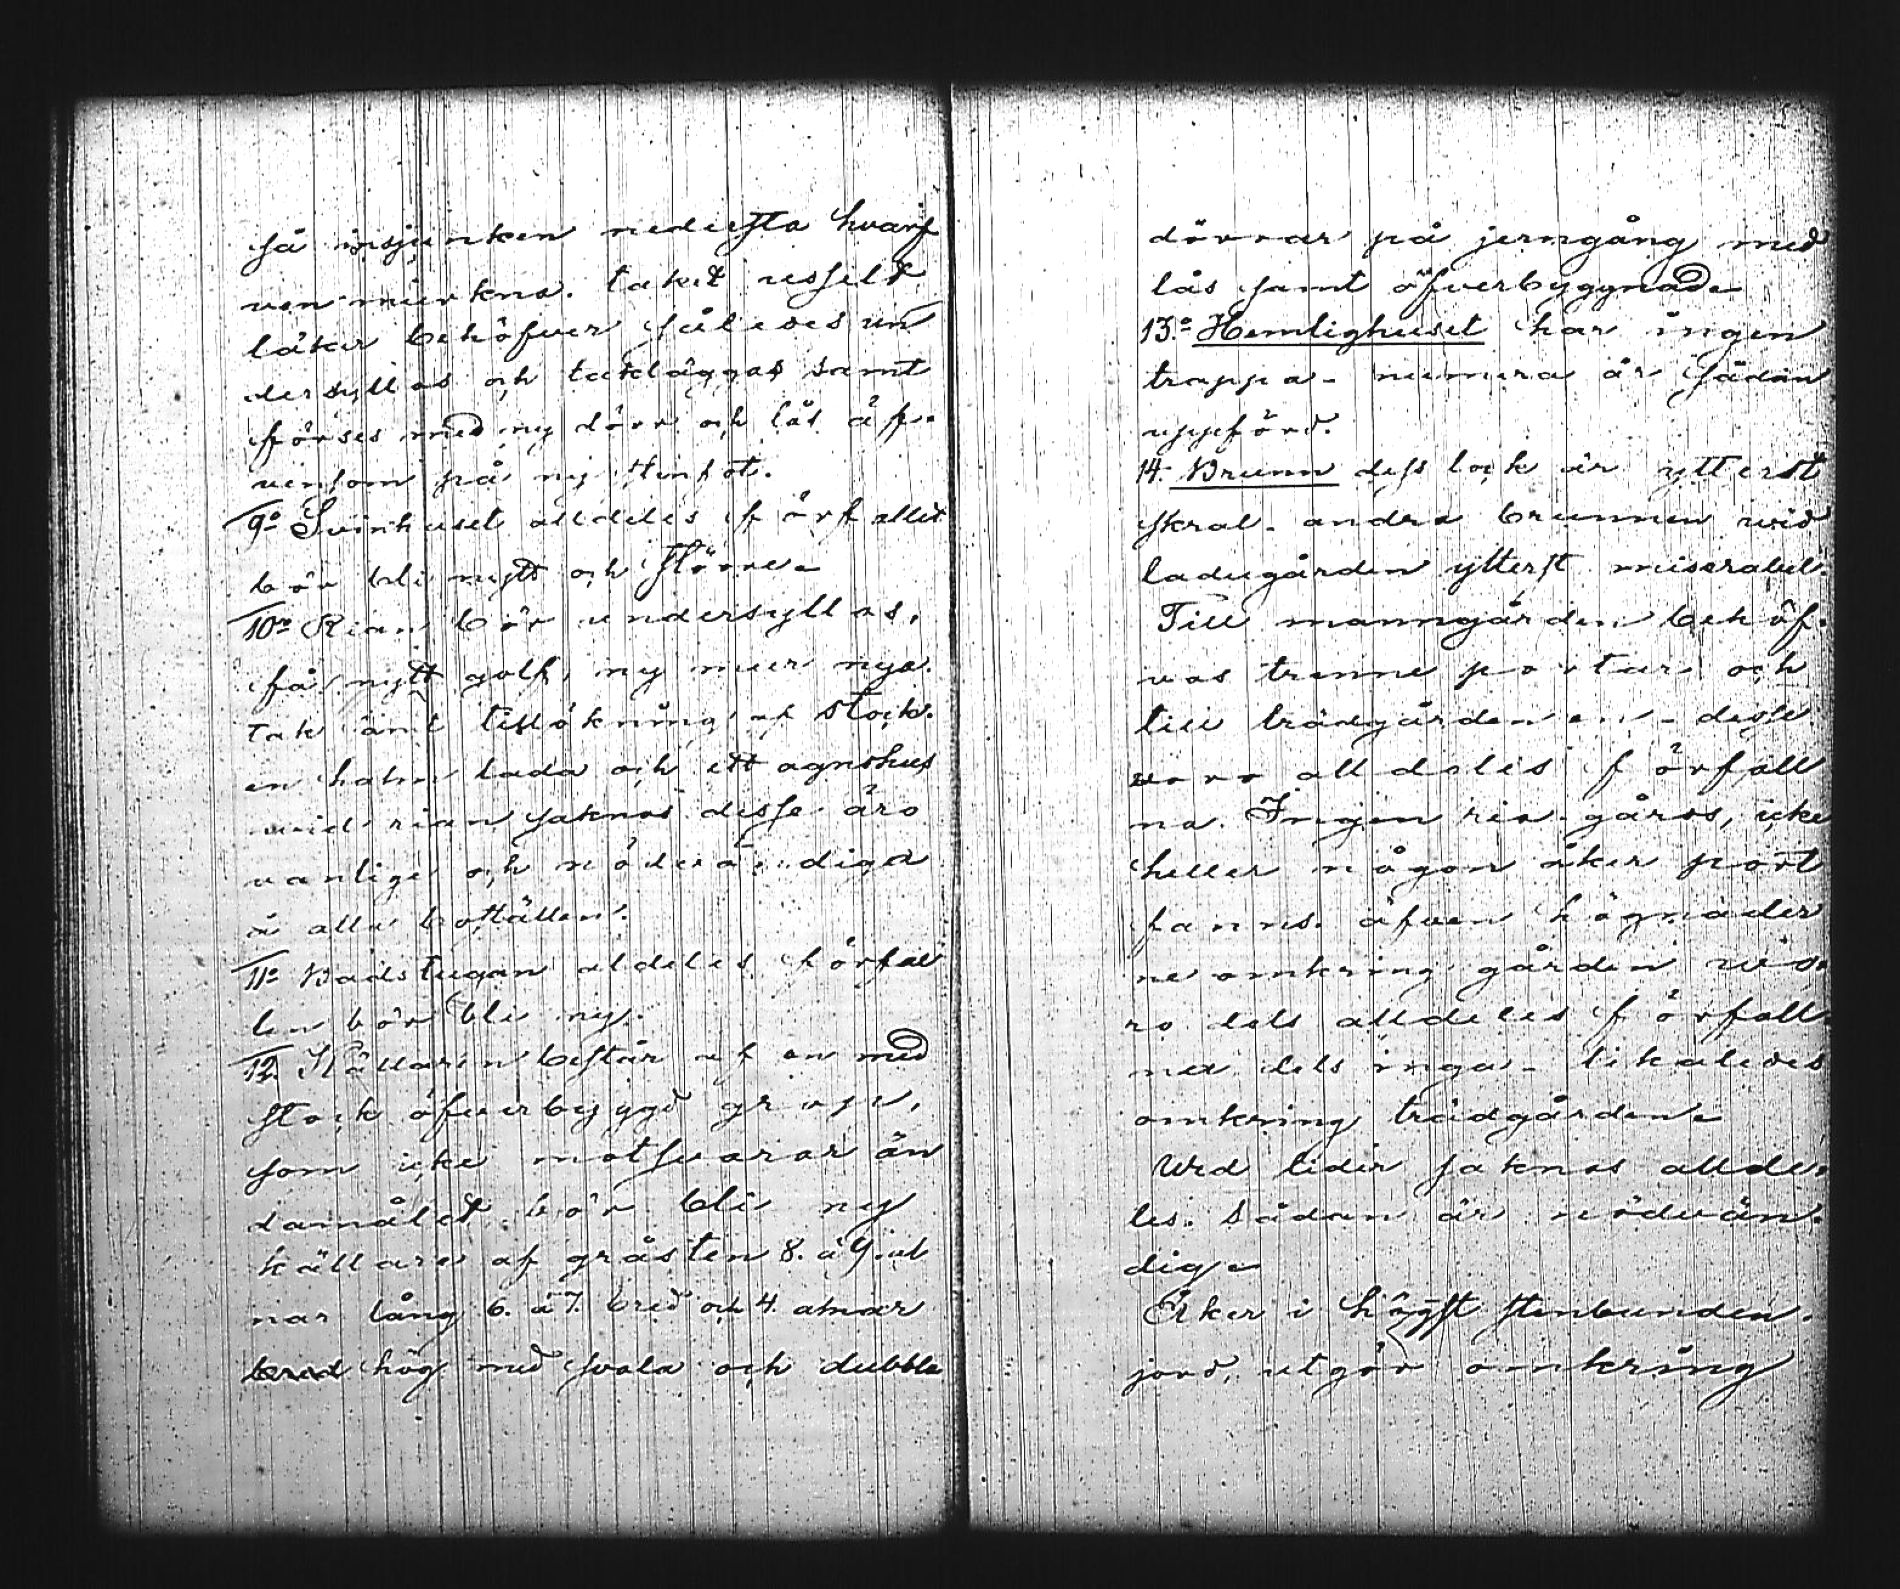 så insjunken nedersta hvarf
ven murkna. taket usselt
läker behöfver således un
dersyllas och takläggas samt
förses med ny dörr och lås äf-
vensom på ny stenfot.
9o Svinhuset alldeles förfallet
bör bli nytt och större.
10o Rian bör undersyllas,
få nytt golf, ny mur nya
tak samt tillökning af stock.
en halm lada och ett agnehus
wid rian saknas desse äro
vanlige och nödvändiga
å alla boställen.
11o Badstugan aldeles förfal
len bör bli ny.
12. Källaren består af en med
stock öfverbyggd grop,
som icke motsvarar än
damålet. bör bli ny
källare af gråsten 8. à 9. al
nar lång 6. à 7. bred och 4. alnar
bred hög med svala och dubbla
dörrar på jerngång med
lås samt öfverbyggnad.
13.o Hemlighuset har ingen
trappa - numera är sådan
uppförd.
14. Brunn dess lock är ytterst
skral. andra brunnen wid
ladugården ytterst miserabel.
Till manngården behöf-
vas trenne portar och
till trädgården en - desse
voro alldeles förfall
na. Ingen ria-gårds, icke
heller någon åker port
fanns. äfven hägnader
ne omkring gården wo-
ro dels alldeles förfall
na dels inga - likaledes
omkring trädgården.
Wed lider saknas allde-
les. Sådan är nödvän-
dig.
Åker i högst stenbunden
jord, utgör omkring